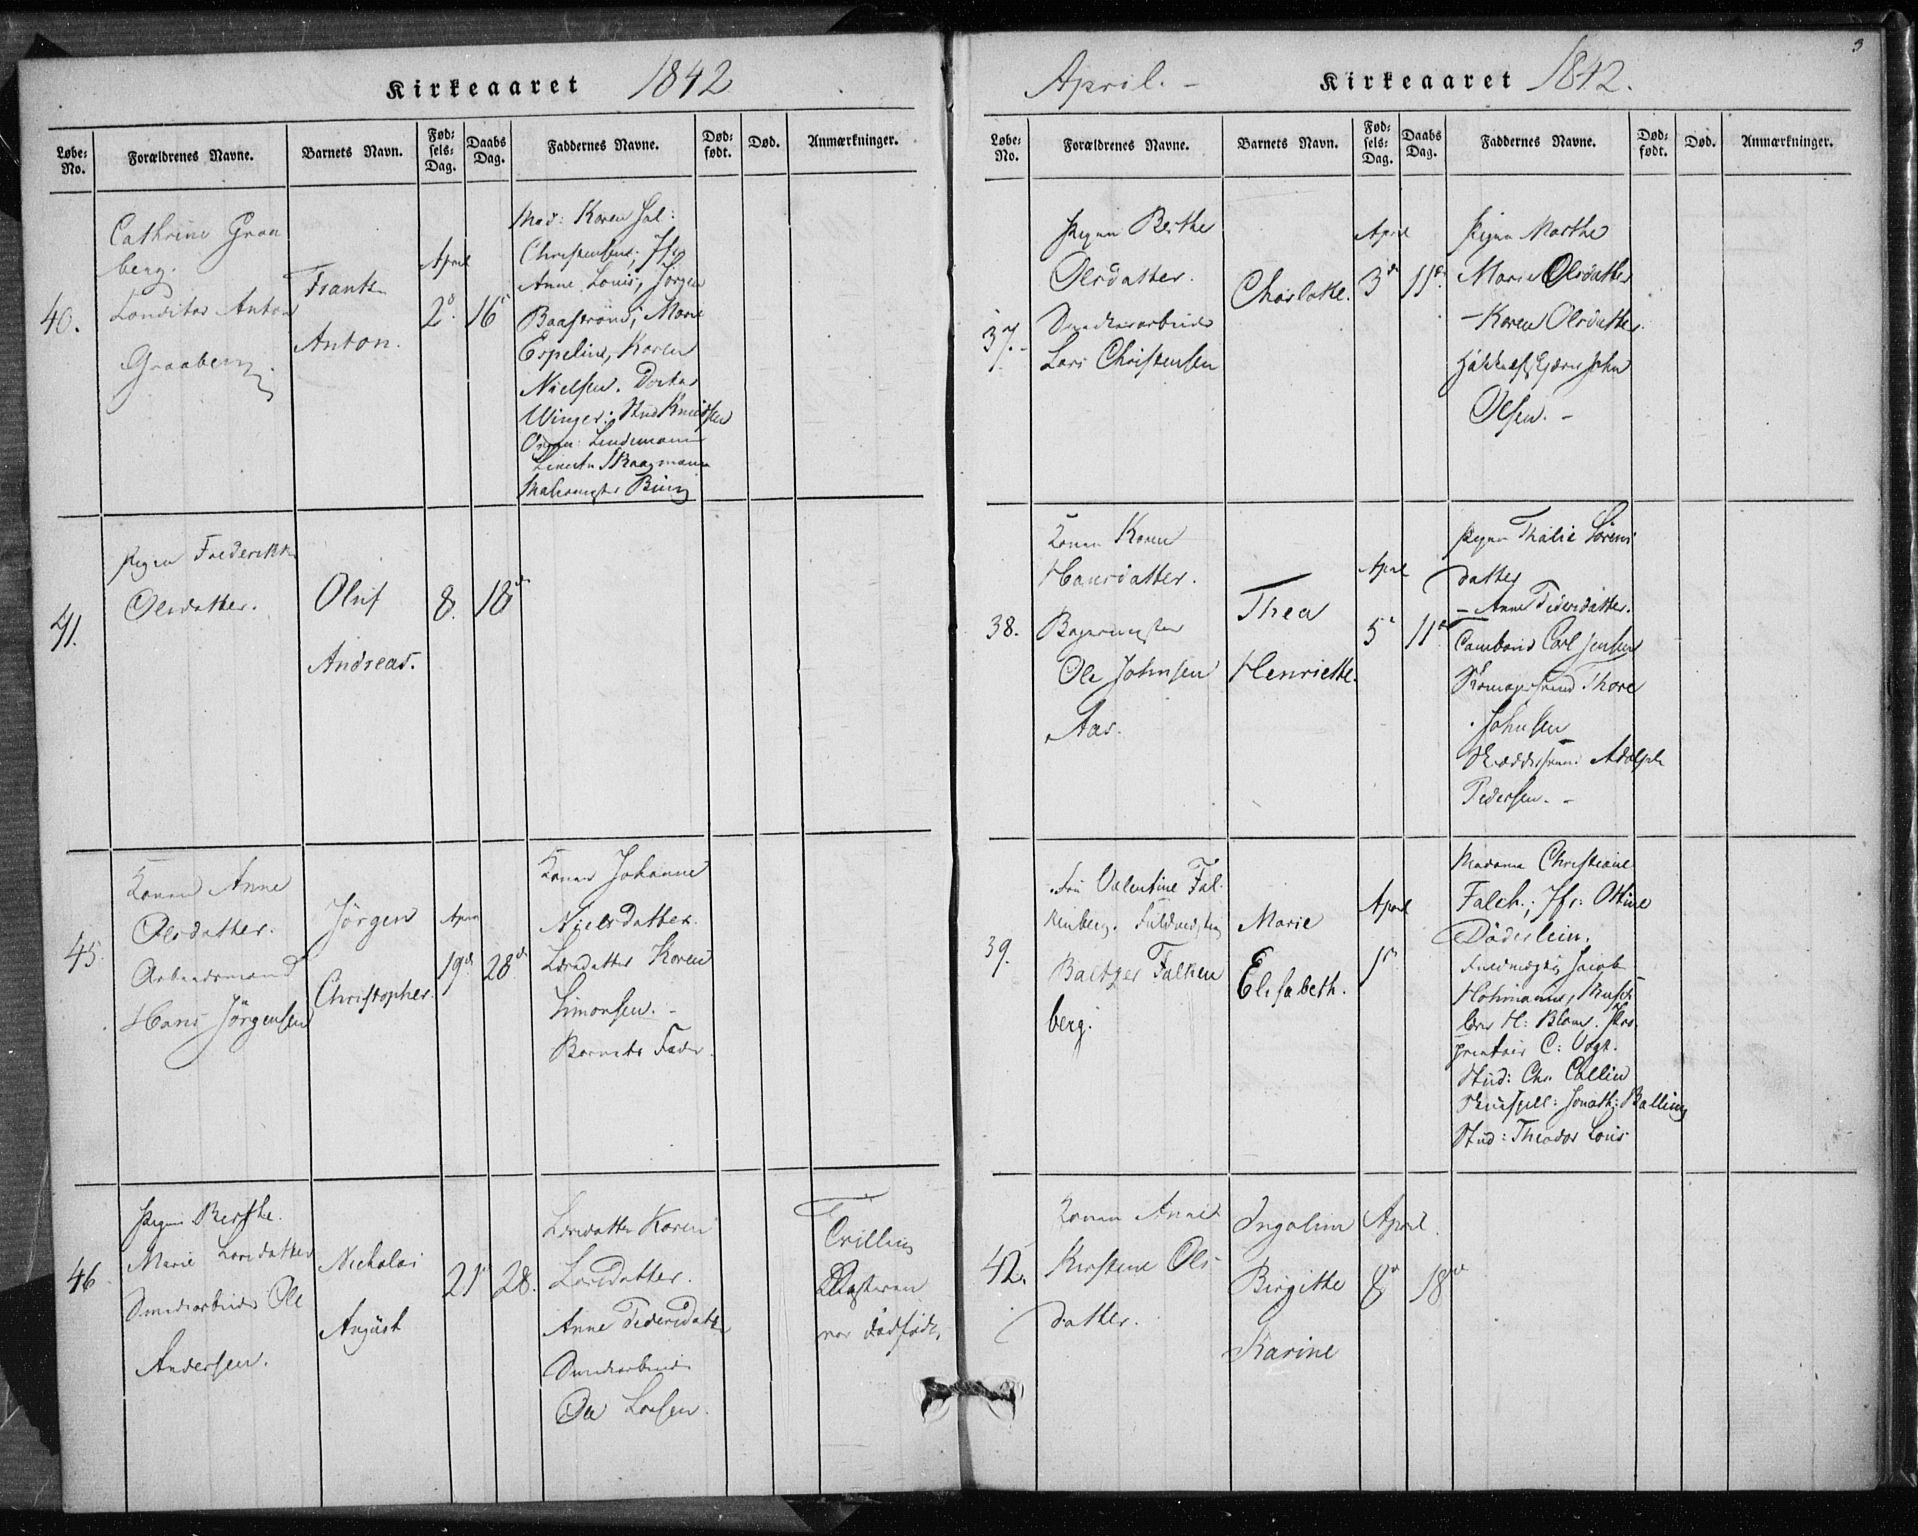 Kirkeaaret 1842
Løbe-No.
Forældrenes Navne.
Barnets Navn.
Fødsels-Dag.
Daabs Dag.
Faddernes Navne.
Dødfødt.
Død.
Anmærkninger.
40.
Cathrine Graa
berg.
Conditor Anton
Graaberg
Frantz
Anton.
April
2d
16d
Mad: Karen Sal:
Christensen; Jfr
Anne Louis, Jørgen
Baastrønd; Marie
Espelin, Karen
Nielsen. Doctor
Winger: Stud Knudsen
Organ: Lindemann
41.
Pigen Frederikke
Olsdatter.
Oluf
Andreas.
8.
18d
45.
Konen Anne
Olsdatter.
Arbeidsmand
Hans Jörgensen
Jörgen
Christopher.
April
19d
28d
Konen Johanne
Nielsdatter.
Karen
Simonsen. -
Barnets Fader.
46
Pigen Berthe
Marie Larsdatter
Ole
Andersen.
Nicholai
August
21
28.
Karen
Larsdatter.
Anne Pedersdatter
Ole Larsen.
Tvilling
var dødfødt,
3
April. - Kirkeaaret 1842.
Løbe-No.
Forældrenes Navne.
Barnets Navn.
Fødsels-Dag.
Daabs Dag.
Faddernes Navne.
Dødfødt.
Død.
Anmærkninger.
37. -
Pigen Berthe
Olsdatter.
Lars Christensen
Charlotte.
April
3d
11d
Pigen Marthe
Marie Olsdatter
- Karen Olsdatter.
John
Olsen. -
38.
Konen Karen
Hansdatter.
Bagermester
Ole Johnsen
Aas.
Thea
Henriette.
April
5d
11d
Pigen Thalie Sörens
datter
- Anne Pedersdatter.
Tambour Carl Jensen
Skomagersvend Thore
Johnsen
Skræddersvend Adolph
Pedersen. -
39.
Fru Valentine Fal
kenberg. Fuldmægtig
Baltzer Falken
berg.
Marie
Elisabeth.
April
1d
Madame Christiane
Falch.; Jfr: Ottine
Döderlein.
Fuldmægtig Jacob
H: Blom. Pro
prietair C: Vogt.
Stud: Chr Collin
Skuespill: Jonath: Balling
Stud: Theodor Louis
42.
Konen Anne
Kirstine Ols
datter.
Ingoline
Birgitte
Karine
April.
8d
18d